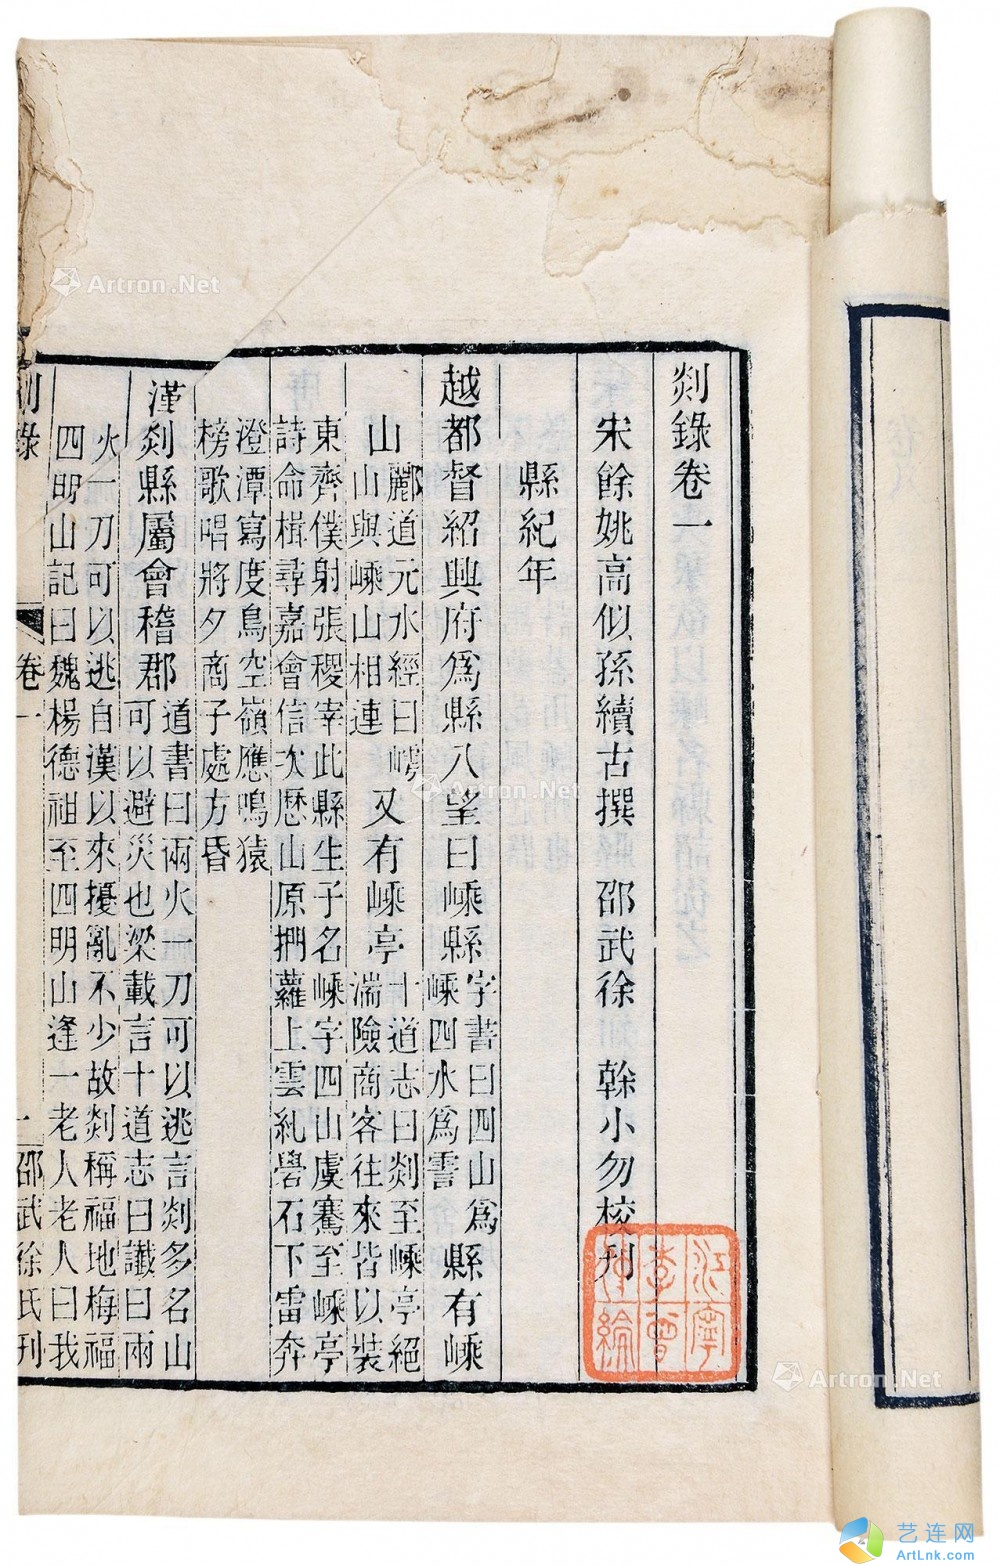 剡錄卷一
宋餘姚高似孫續古撰 邵武徐 榦小勿校刊
縣紀年
越都督紹興府爲縣八望曰嵊縣字書曰四山爲
嵊四水爲䨩縣有嵊
山酈道元水經曰㠗
山山與嵊山相連又有嵊亭十道志曰剡至嵊亭絕
湍險商客往來皆以裝
東齊僕射張稷宰此縣生子名嵊字四山虞騫至嵊亭
詩命楫尋嘉會信次歷山原捫蘿上雲糺礐石下雷奔
澄潭寫度鳥空嶺應鳴猿
榜歌唱將夕商子處方昏
漢剡縣屬會稽郡道書曰兩火一刀可以逃言剡多名山
可以避災也梁載言十道志曰讖曰兩
火一刀可以逃自漢以來擾亂不少故剡稱福地梅福
四明山記曰魏楊德祖至四明山逢一老人老人曰我
剡錄 卷一 一 邵武徐氏刊
江寧
Artron.Net
Artron.Net
Artron.Net
艺连网
ArtLnk.com